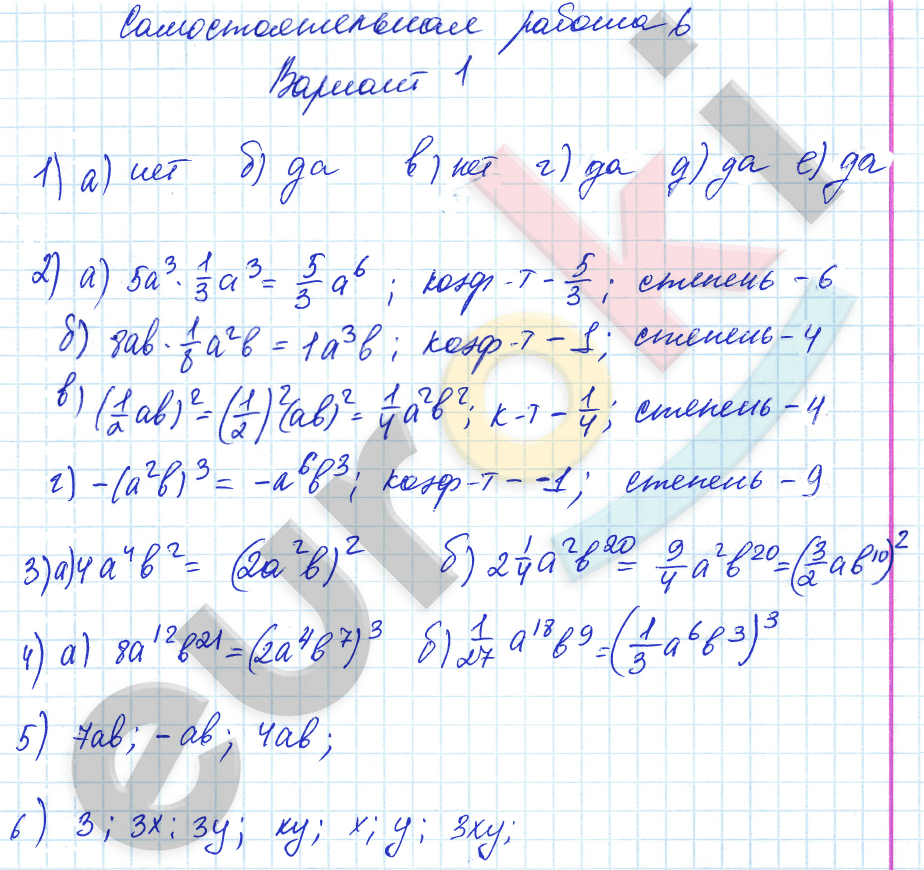 Самостоятельная работа 6
Вариант 1
1) а) нет б) да в) нет г) да д) да е) да
2) а) 5a³ · 1/3 a³ = 5/3 a⁶ ; коэф-т - 5/3 ; степень - 6
б) 8ab · 1/8 a²b = 1a³b ; коэф-т - 1; степень - 4
в) (1/2 ab)² = (1/2)² (ab)² = 1/4 a²b² ; к-т - 1/4 ; степень - 4
г) -(a²b)³ = -a⁶b³ ; коэф-т - -1; степень - 9
3) а) 4a⁴b² = (2a²b)² б) 2 1/4 a²b²⁰ = 9/4 a²b²⁰ = (3/2 ab¹⁰)²
4) а) 8a¹²b²¹ = (2a⁴b⁷)³ б) 1/27 a¹⁸b⁹ = (1/3 a⁶b³)³
5) 7ab; -ab; 4ab;
6) 3; 3x; 3y; xy; x; y; 3xy;
euroki